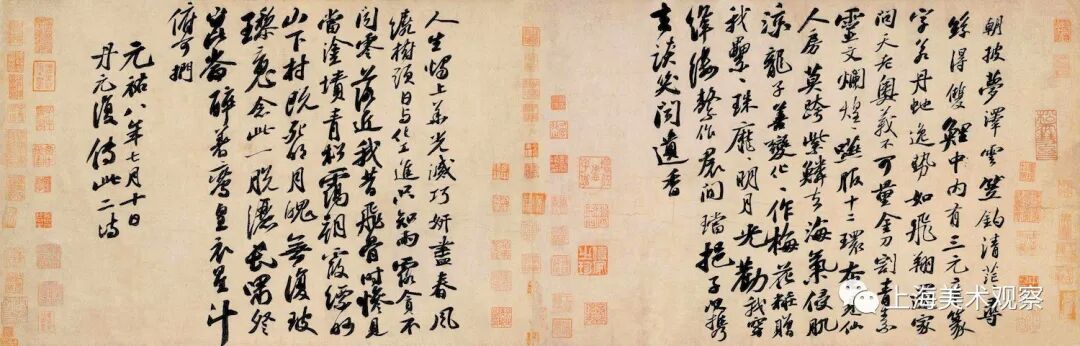 朝披夢澤雲笠釣清茫々尋
絲得雙鯉中內有三元章篆
字若丹虵逸勢如飛翔歸家
問天老奧義不可量金刀割青素
靈文爛煌々嚥服十二環奄見仙
人房莫跨紫鱗去海氣侵肌
涼龍子善變化々作梅花粧贈
我纍々珠靡々明月光勸我穿
絳縷繫作裙間襠挹子以攜
去談笑聞遺香
人生燭上華光滅巧妍盡春風
繞樹頭日與化工進只知雨露貪不
聞零落近我昔飛骨時慘見
當塗墳青松靄朝霞縹緲
山下村既死明月魄無復玻
瓈魂念此一脫灑長嘯登
崑崙醉著鸞皇衣星斗
俯可捫
元祐八年七月十日
丹元復傳此二詩
上海美术观察